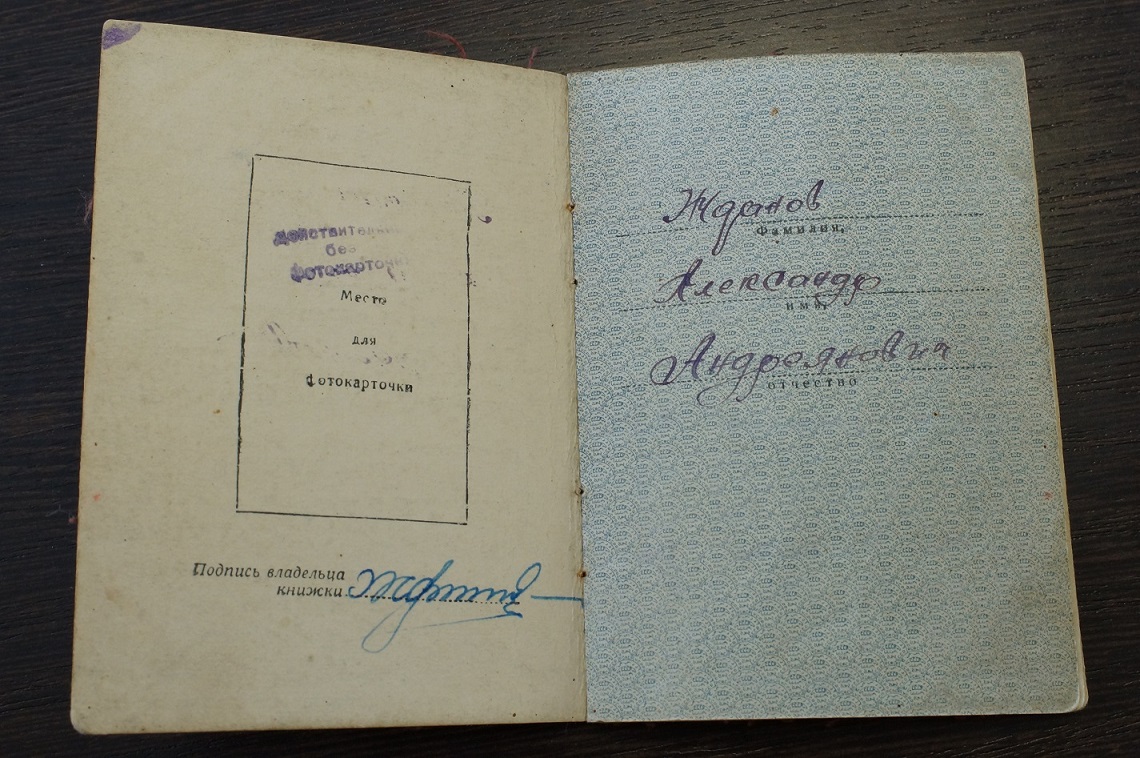 Действительно
без
фотокарточки
Место
для
фотокарточки
Подпись владельца
книжки
Жданов
Фамилия,
Александр
имя,
Андреянович
отчество